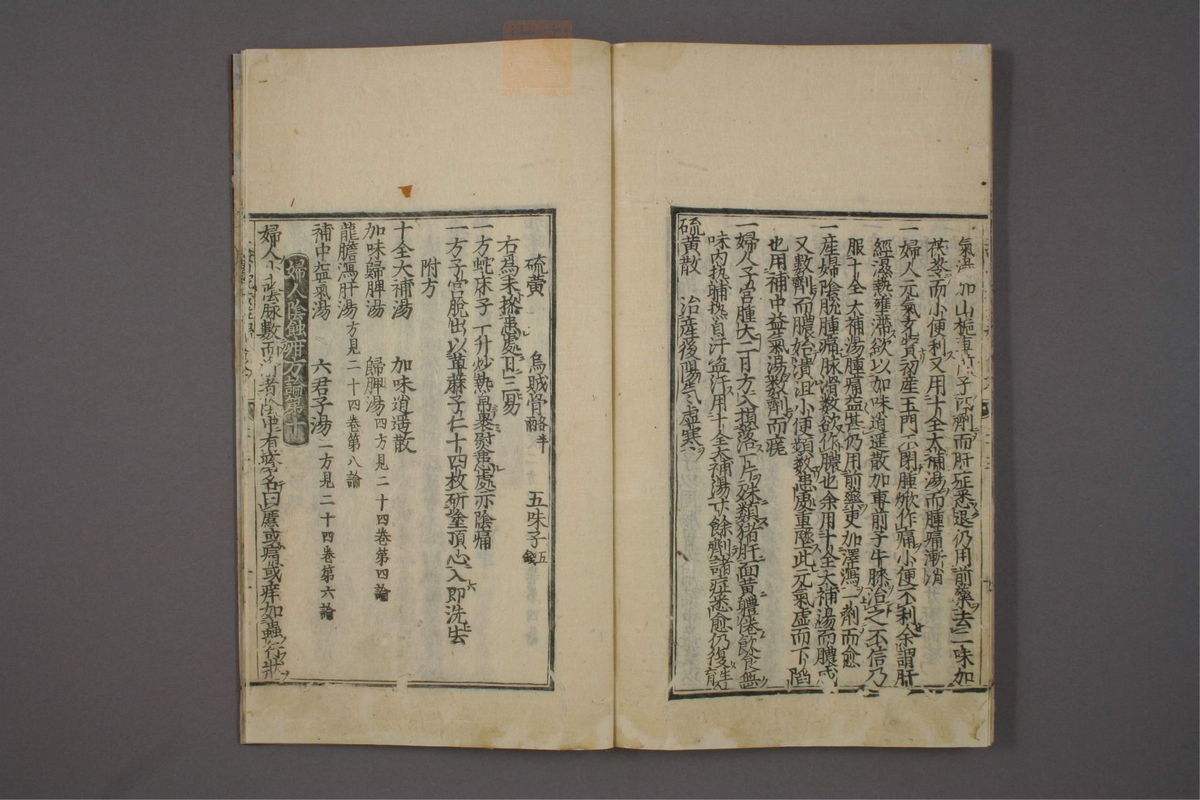 氣湯加山梔車前子數劑而肝症悉退仍用前藥去二味加
茯苓而小便利又用十全大補湯而腫痛漸消
一婦人元氣素弱初産玉門不閉腫焮作痛小便不利余謂肝
經濕熱壅滯欲以加味逍遥散加車前子牛膝治之不信乃
服十全大補湯腫痛益甚仍用前藥更加澤瀉一劑而愈
一産婦陰脫腫痛脉滑數欲作膿也余用十全大補湯而膿成
又數劑而膿始潰但小便頻數患處重墜此元氣虛而下陷
也用補中益氣湯數劑而痊
一婦人子宮腫大二日方入損落一片殊類猪肝面黃體倦飲食無
味内熱晡熱自汗盗汗用十全大補湯二十餘劑諸症悉愈仍復生育
硫黃散 治産後陽氣虛寒
硫黃 烏賊骨 各半 五味子 五錢
右為末摻患處日三易
一方蛇床子一升炒熱帛裹熨患處亦陰痛
一方子宮脫出以蓖麻子仁十四枚研塗頂心入即洗去
附方
十全大補湯 加味逍遥散
加味歸脾湯 歸脾湯 四方見二十四卷第四論
龍膽瀉肝湯 方見二十四卷第八論
補中益氣湯 六君子湯 二方見二十四卷第六論
婦人陰蝕瘡方論第十
婦人少陰脉數而滑者陰中有瘡名曰䘌或痛或痒如蟲行狀